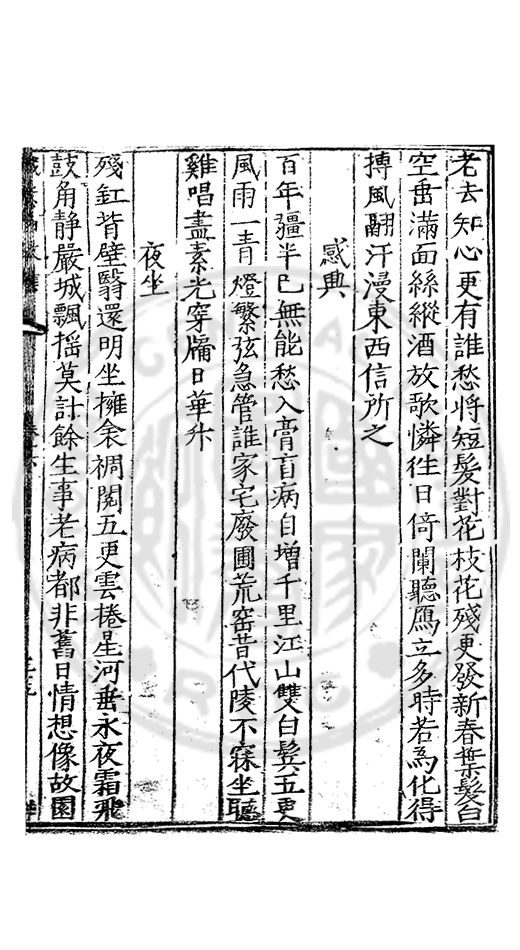 老去知心更有誰愁將短髮對花枝花殘更發新春葉髮白
空垂滿面絲縱酒放歌憐徃日倚闌聽鴈立多時若為化得
摶風翮汗漫東西信所之
感興
百年疆半已無能愁入膏肓病自增千里江山雙白鬂五更
風雨一青燈繁弦急管誰家宅廢圃荒窑昔代陵不寐坐聽
雞唱盡素光穿牖日華升
夜坐
殘釭背壁翳還明坐擁衾裯閱五更雲捲星河垂永夜霜飛
鼓角静嚴城飄摇莫計餘生事老病都非舊日情想像故園